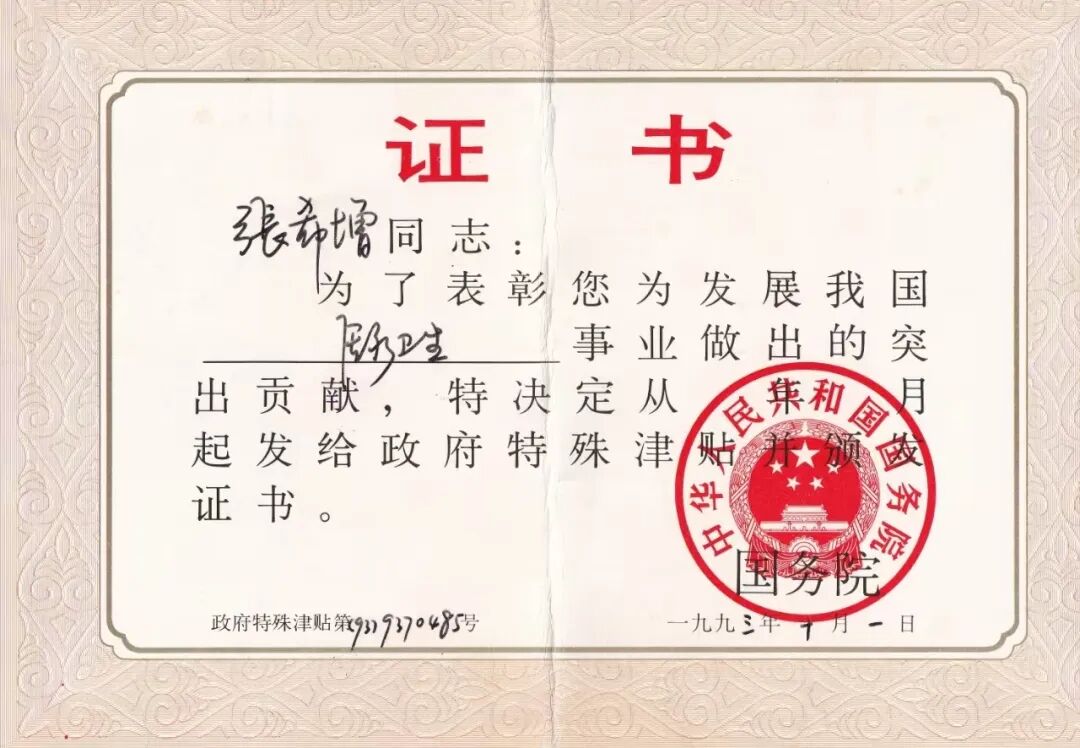 证书
張希增同志：
为了表彰您为发展我国
医疗卫生事业做出的突
出贡献，特决定从 年 月
起发给政府特殊津贴并颁发
证书。
中华人民共和国国务院
国务院
政府特殊津贴第(93)9370485号
一九九三年十月一日